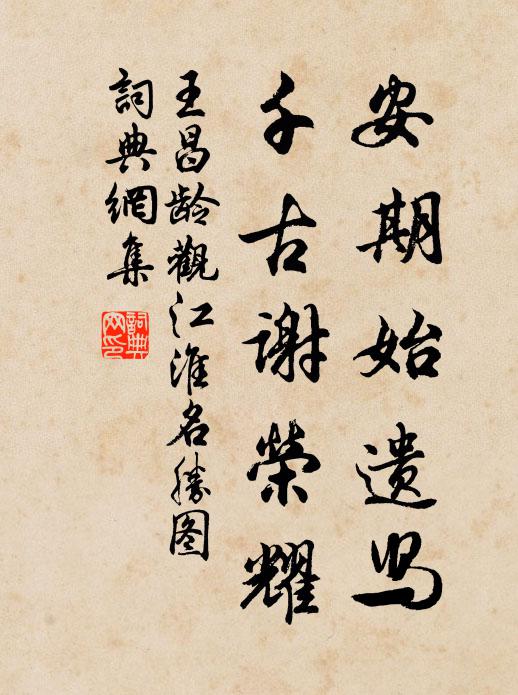 安期始遗舄
千古謝榮耀
王昌龄觀江淮名勝图
詞典網集
詞典网印